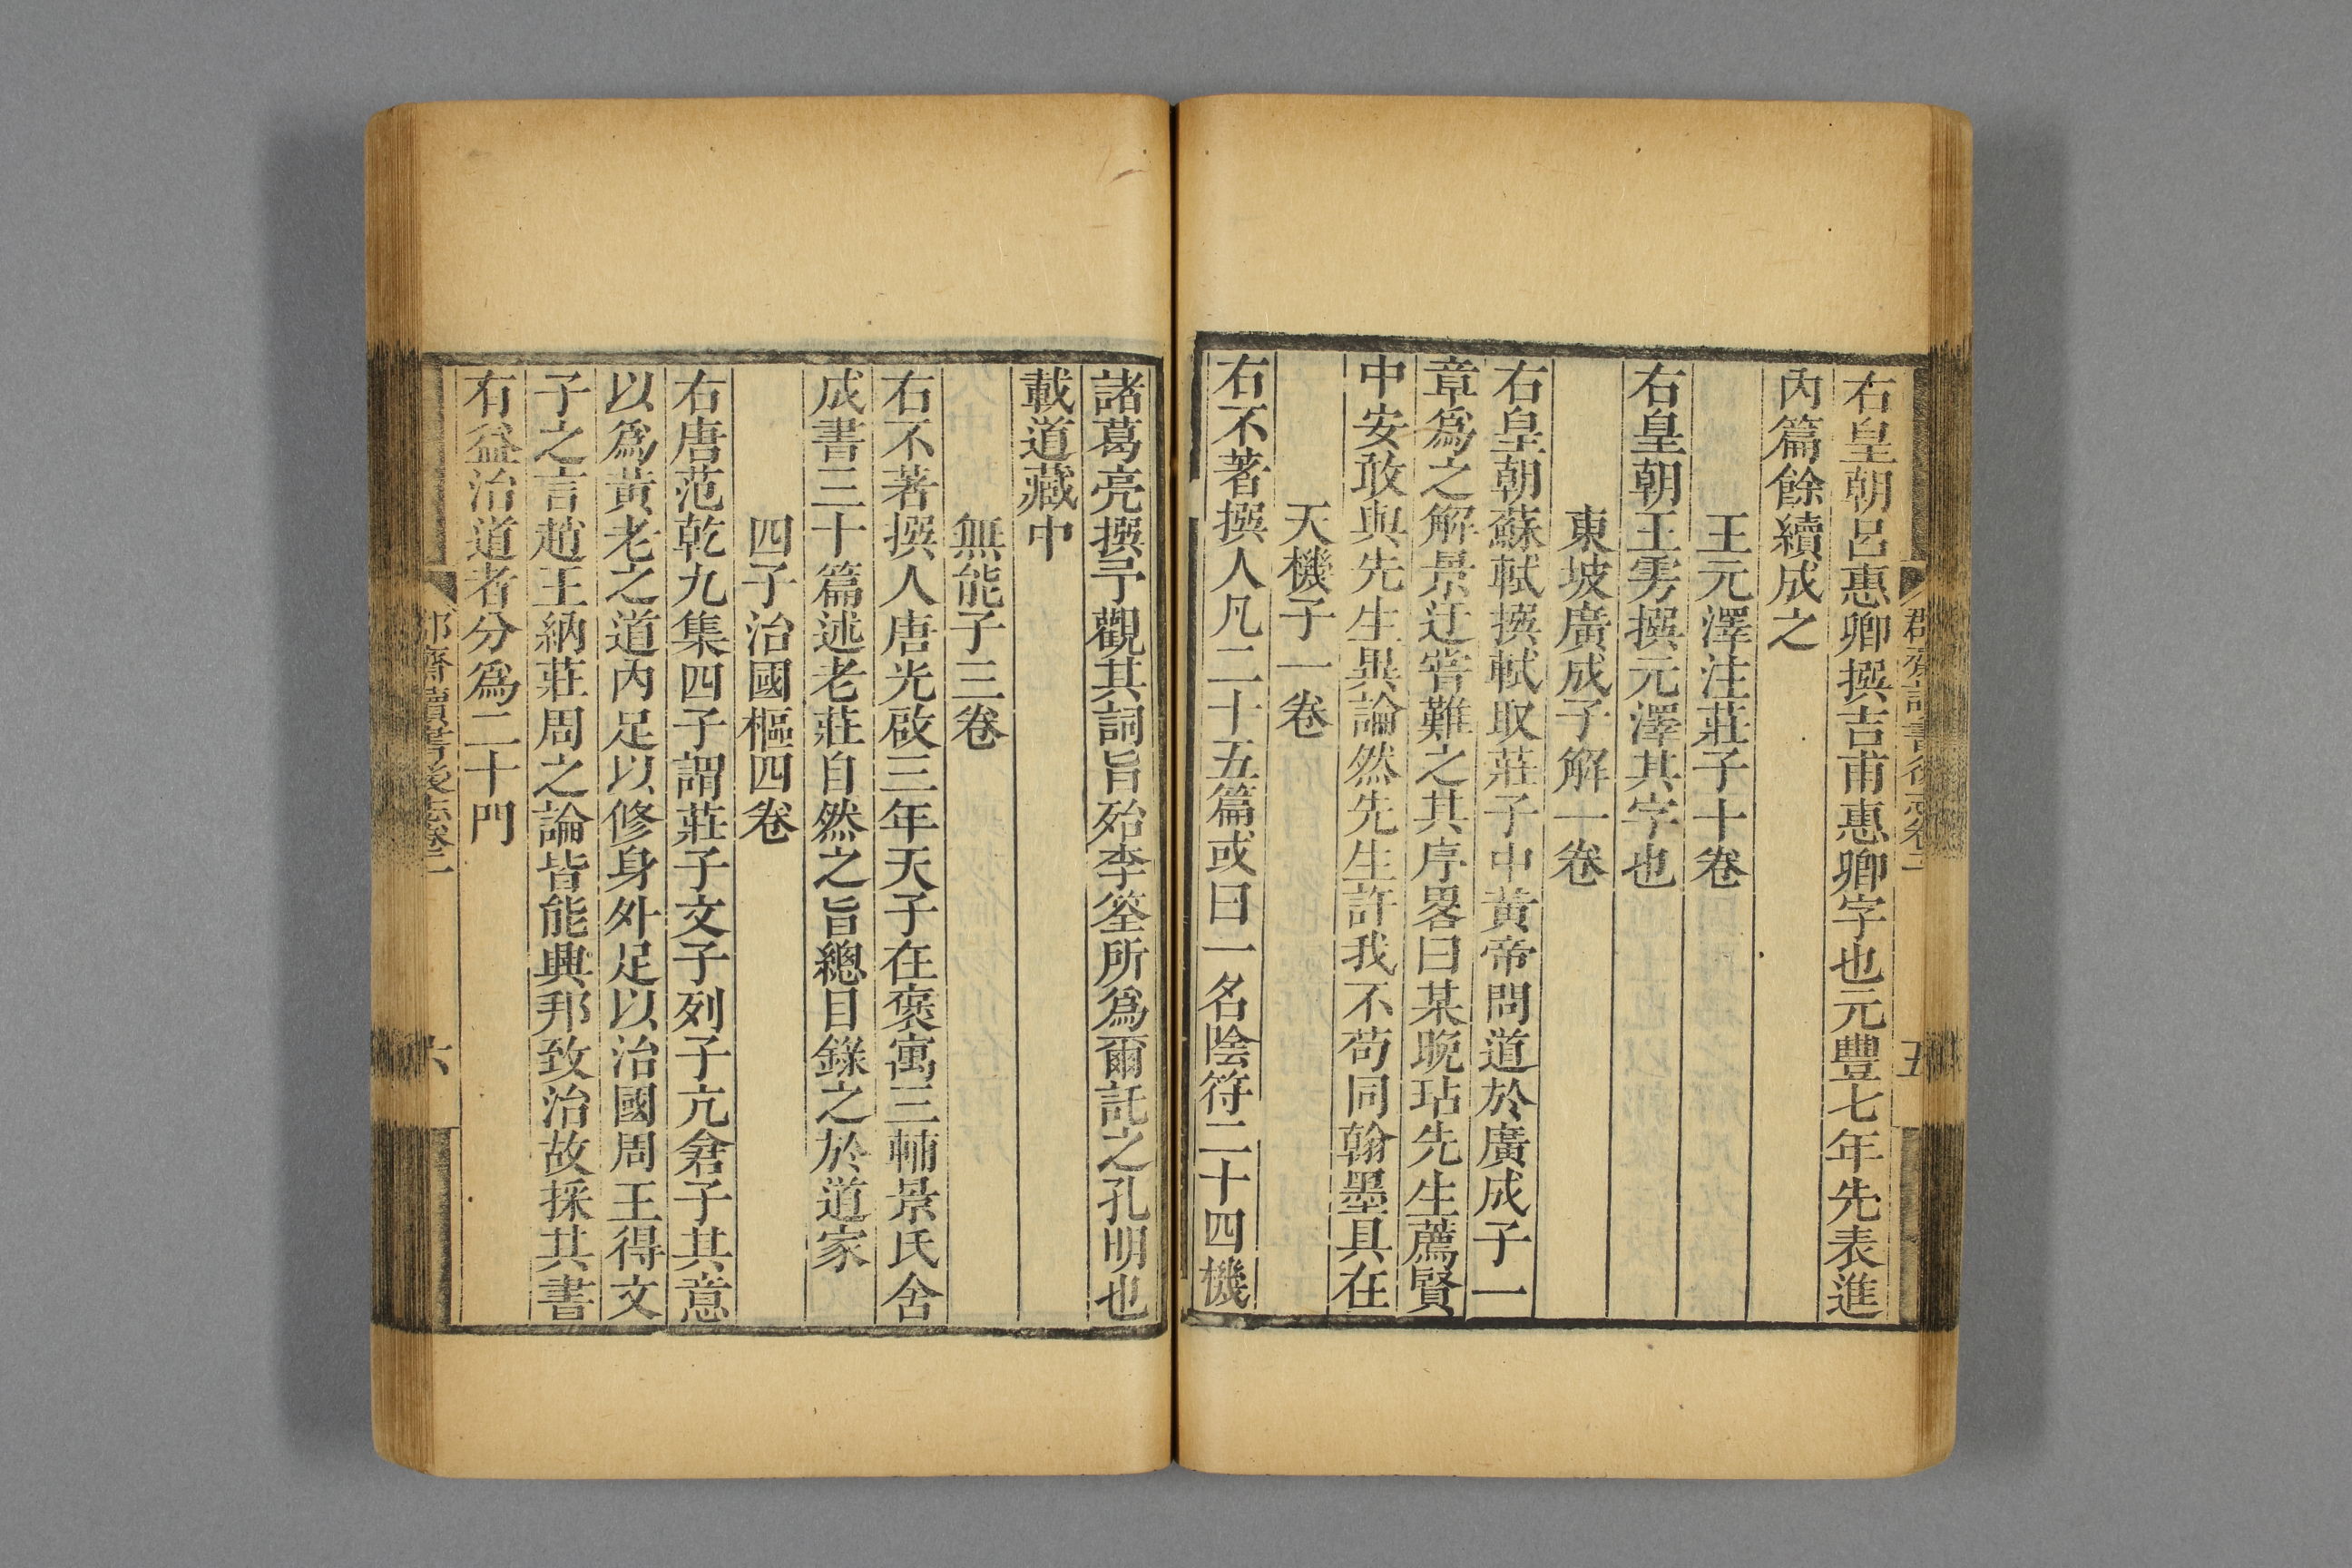 右皇朝呂惠卿撰吉甫惠卿字也元豐七年先表進
内篇餘續成之
王元澤注莊子十卷
右皇朝王雱撰元澤其字也
東坡廣成子解一卷
右皇朝蘇軾撰軾取莊子中黃帝問道於廣成子一
章爲之解景迂嘗難之其序畧曰某晚玷先生薦賢
中安敢與先生異論然先生許我不苟同翰墨具在
天機子一卷
右不著撰人凡二十五篇或曰一名陰符二十四機
諸葛亮撰予觀其詞旨殆李筌所爲爾託之孔明也
載道藏中
無能子三卷
右不著撰人唐光啟三年天子在褒寓三輔景氏舍
成書三十篇述老莊自然之旨總目錄之於道家
四子治國樞四卷
右唐范乾九集四子謂莊子文子列子亢倉子其意
以爲黃老之道内足以修身外足以治國周王得文
子之言趙王納莊周之論皆能興邦致治故採其書
有益治道者分爲二十門
齋讀書後志卷二
六